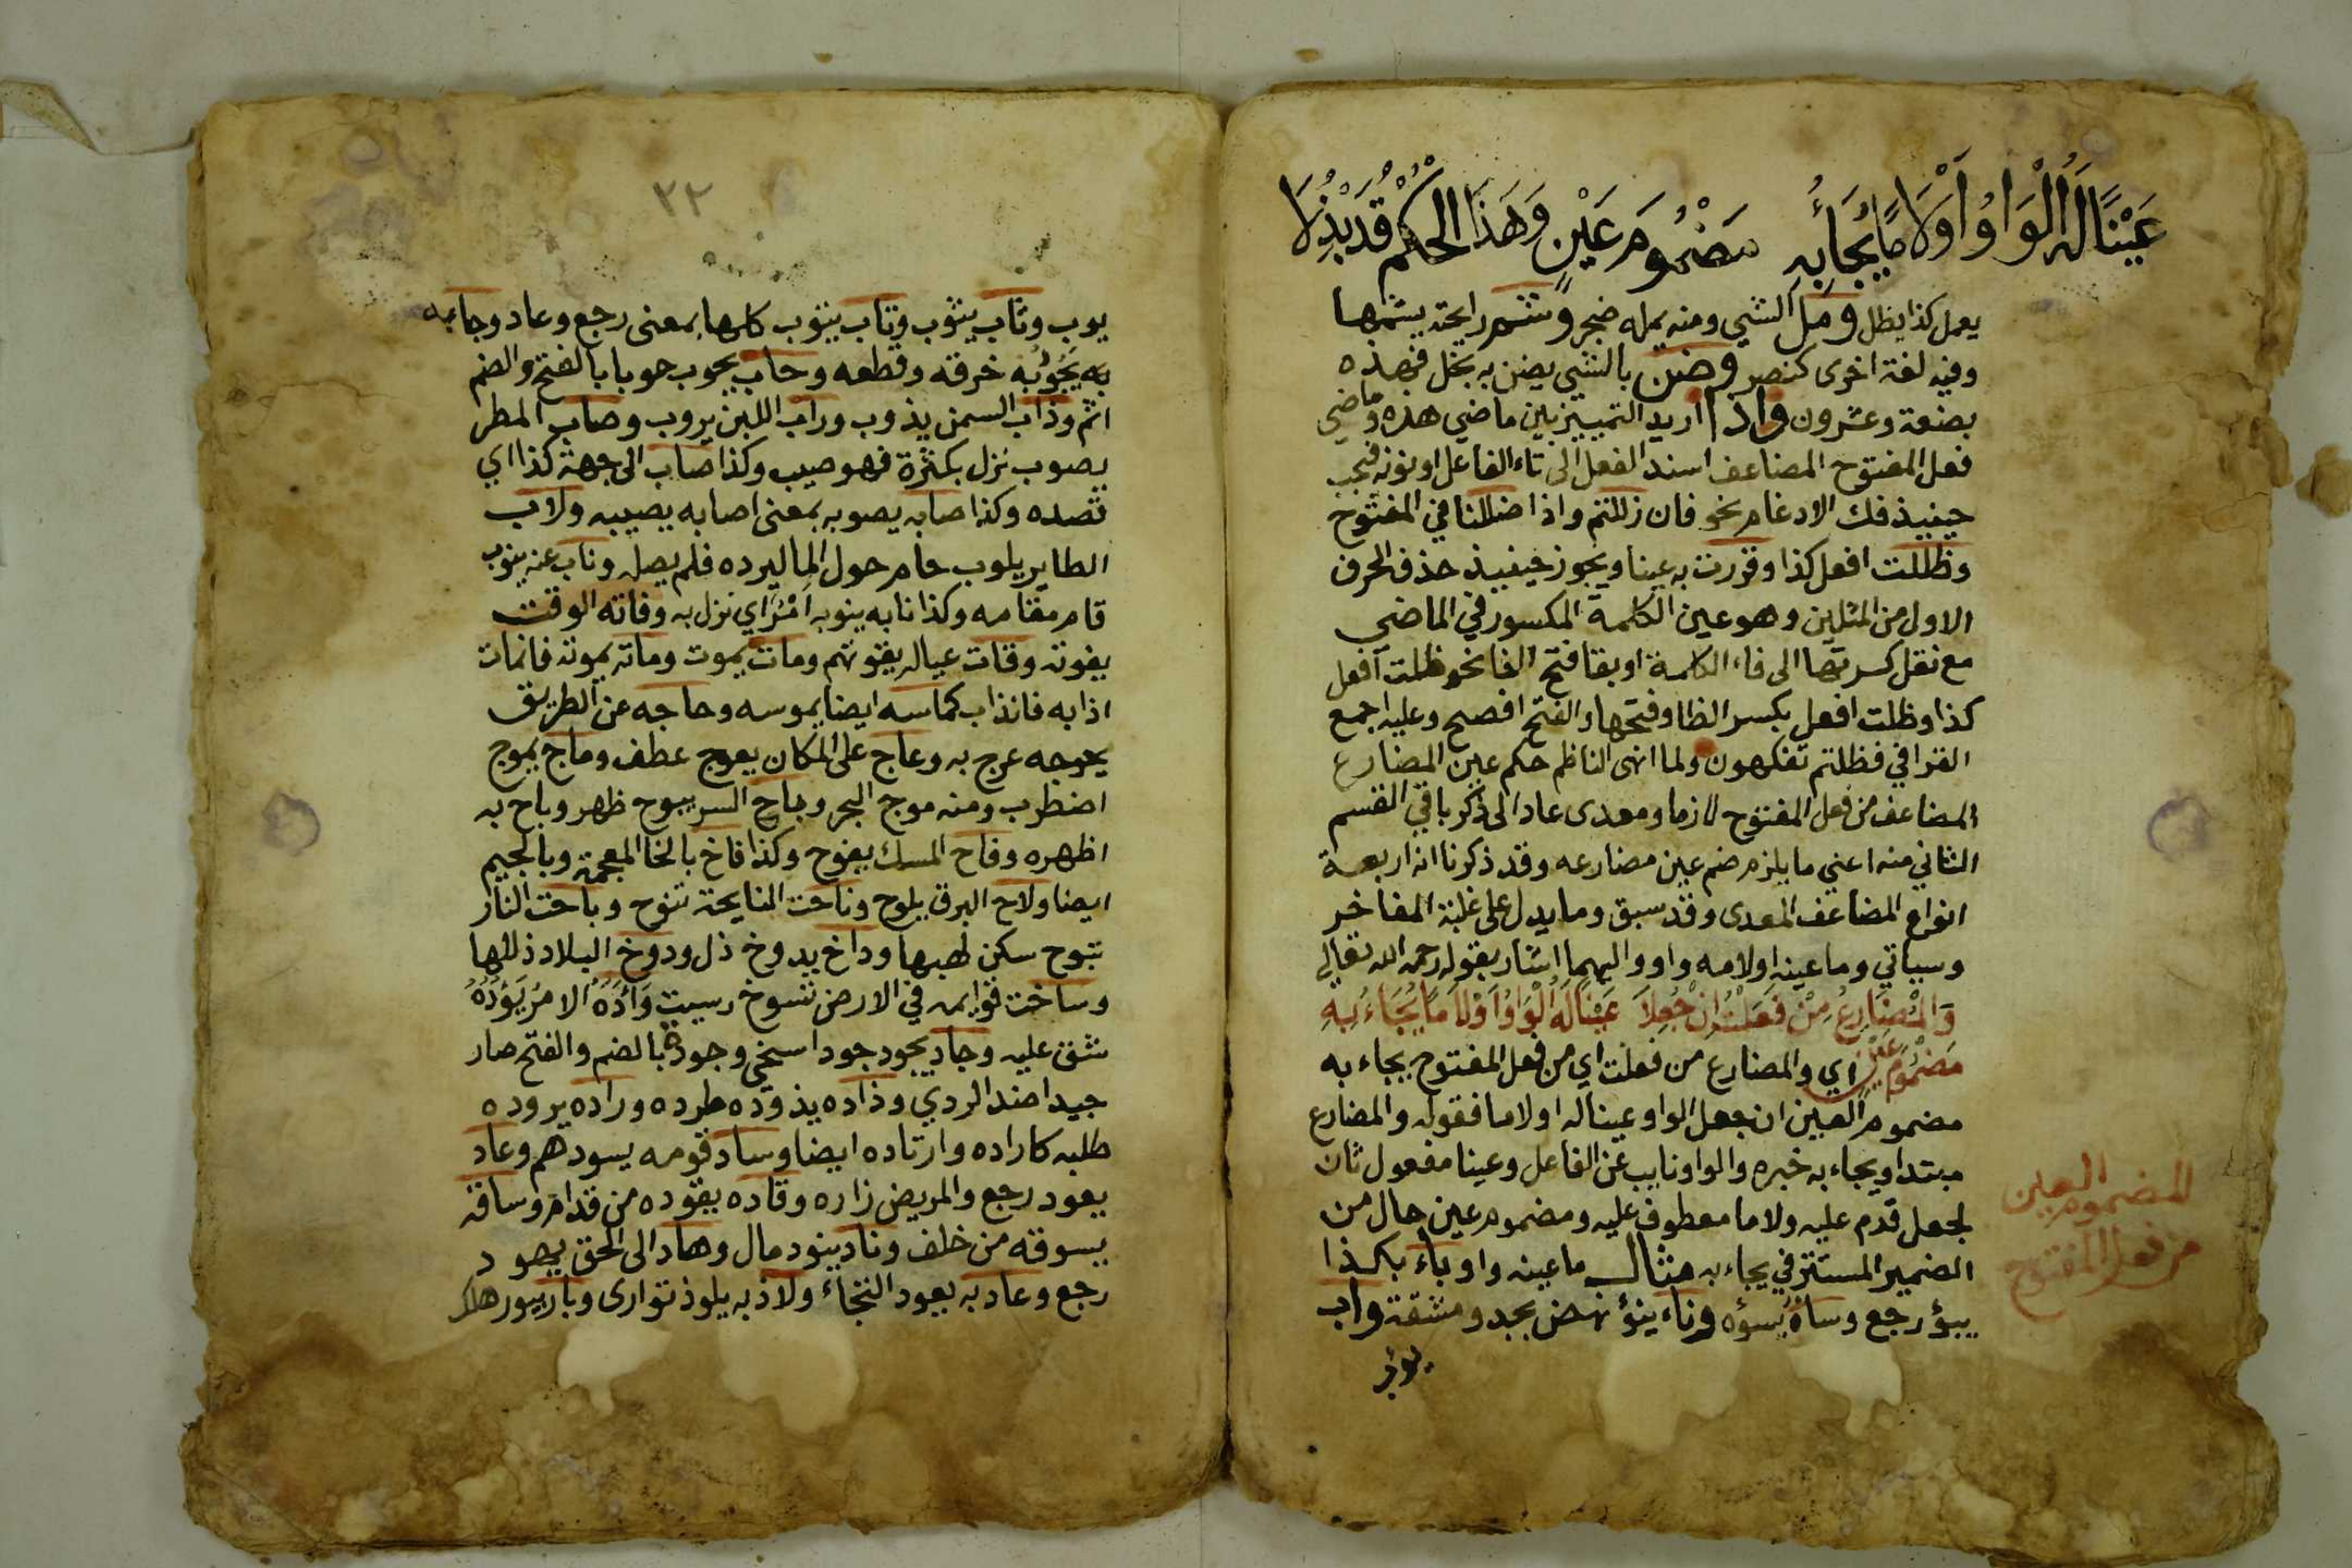 عَيْنًا لَهُ الْوَاوُ أَوْ لَامًا يُجَاءُ بِهِ مَضْمُومَ عَيْنٍ وَهَذَا الْحُكْمُ قَدْ بُذِلَا
يعمل كذا يظل ومل الشي ومنه يمله ضجر وشم رايحة يشمها
وفيه لغة اخرى كنصر وضن بالشي يضن به بخل فهذه
بضعة وعشرون واذا اريد التمييز بين ماضي هذه وماضي
فعل المفتوح المضاعف اسند الفعل الى تاء الفاعل او نونه فيجب
حينيذ فك الادغام نحو فان زللتم واذا ضللنا في المفتوح
وظللت افعل كذا وقررت به عينا ويجوز حينيذ حذف الحرف
الاول من المثلين وهو عين الكلمة المكسور في الماضي
مع نقل كسرتها الى فاء الكلمة او بقا فتح الفا نحو ظلت افعل
كذا وظلت افعل بكسر الظا وفتحها والفتح افصح وعليه اجمع
القرا في فظلتم تفكهون ولما انهى الناظم حكم عين المضارع
المضاعف من فعل المفتوح لازما ومعدى عاد الى ذكر باقي القسم
الثاني منه اعني ما يلزم ضم عين مضارعه وقد ذكرنا انه اربعة
انواع المضاعف المعدى وقد سبق وما يدل على غلبة المفاخر
وسياتي وما عينه او لامه واو واليهما اشار بقوله رحمه الله تعالى
وَالْمُضَارِعُ مِنْ فَعَلْتُ إِنْ جُعِلَا عَيْنًا لَهُ الْوَاوُ أَوْ لَامًا يُجَاءُ بِهِ
مَضْمُومَ عَيْنٍ اي والمضارع من فعلت اي من فعل المفتوح يجاء به
مضموم العين ان جعل الواو عينا له او لاما فقوله والمضارع
مبتدا ويجاء به خبره والواو نايب عن الفاعل وعينا مفعول ثان
لجعل قدم عليه ولاما معطوف عليه ومضموم عين حال من
الضمير المستتر في يجاء به مثال ما عينه واو باء بكذا
يبؤ رجع وساه يسؤه وناء ينؤ نهض بجهد ومشقة واب
يوب
المضموم العين
من فعل المفتوح
٢٢
يوب وثاب يثوب وتاب يتوب كلها بمعنى رجع وعاد وجابه
به يَجُوبُه خرقه وقطعه وحاب يحوب حوبا بالفتح والضم
اثم وذاب السمن يذوب وراب اللبن يروب وصاب المطر
يصوب نزل بكثرة فهو صيب وكذا صاب الى جهة كذا اي
قصده وكذا صابه يصوبه بمعنى اصابه يصيبه ولاب
الطاير يلوب حام حول الما ليرده فلم يصله وناب عنه ينوب
قام مقامه وكذا نابه ينوبه اَمْرٌ اي نزل به وفاته الوقت
يفوته وقات عياله يقوتهم ومات يموت وماته يموته فانمات
اذابه فانذاب كماسه ايضا يموسه وحاجه عن الطريق
يحوجه عرج به وعاج على المكان يعوج عطف وماج يموج
اضطرب ومنه موج البحر وباح السر يبوح ظهر وباح به
اظهره وفاح المسك يفوح وكذا فاخ بالخا المعجمة وبالجيم
ايضا ولاح البرق يلوح وناحت النايحة تنوح وباخت النار
تبوخ سكن لهبها وداخ يدوخ ذل ودوخ البلاد ذللها
وساخت قوايمه في الارض تسوخ رسبت وَآدَهُ الامر يَؤُدُهُ
شق عليه وجاد يجود جودا سخي وجودة بالضم والفتح صار
جيدا ضد الردي وذاده يذوده طرده وراده يروده
طلبه كاراده وارتاده ايضا وساد قومه يسودهم وعاد
يعود رجع والمريض زاره وقاده يقوده من قدام وساقه
يسوقه من خلف وناد ينود مال وهاد الى الحق يهود
رجع وعاد به يعود التجاء ولاذ به يلوذ توارى وبار يبور هلك